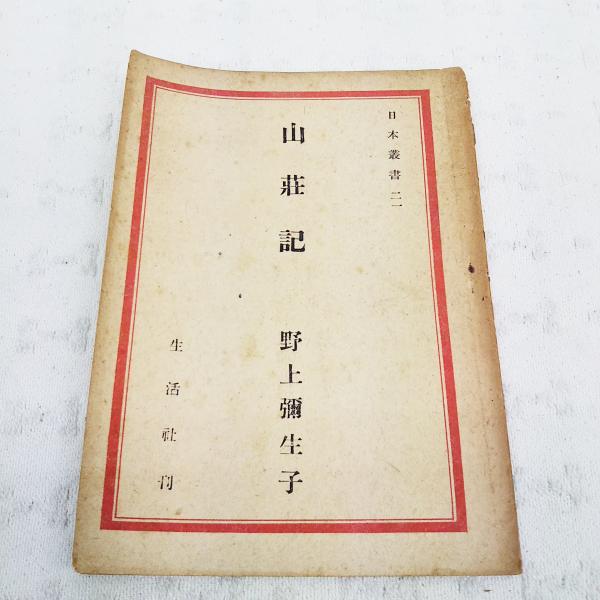 日本叢書 二一
山莊記
野上彌生子
生活社刊